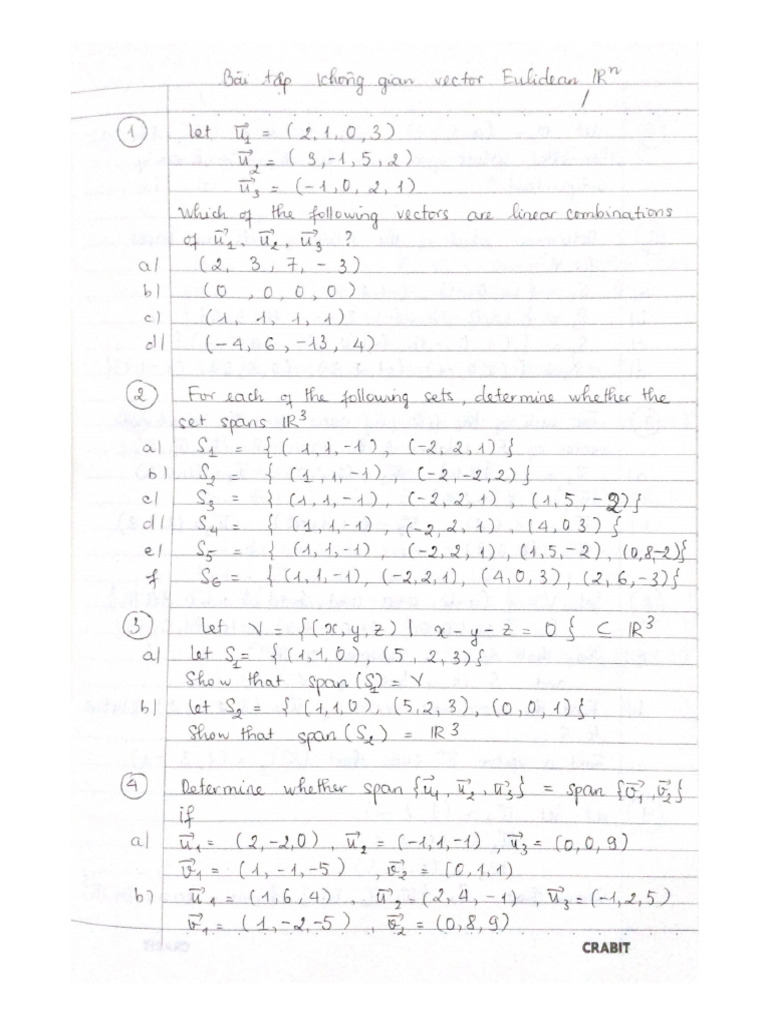 Bài tập không gian vector Eulidean IRⁿ
① let u⃗₁ = (2,1,0,3)
u⃗₂ = (3,-1,5,2)
u⃗₃ = (-1,0,2,1)
Which of the following vectors are linear combinations
of u⃗₁, u⃗₂, u⃗₃ ?
a/ (2, 3, 7, -3)
b/ (0, 0, 0, 0)
c/ (1, 1, 1, 1)
d/ (-4, 6, -13, 4)
② For each of the following sets, determine whether the
set spans IR³
a/ S₁ = {(1,1,-1), (-2,2,1)}
b/ S₂ = {(1,1,-1), (-2,-2,2)}
c/ S₃ = {(1,1,-1), (-2,2,1), (1,5,-2)}
d/ S₄ = {(1,1,-1), (-2,2,1), (4,03)}
e/ S₅ = {(1,1,-1), (-2,2,1), (1,5,-2), (0,8-2)}
f S₆ = {(1,1,-1), (-2,2,1), (4,0,3), (2,6,-3)}
③ Let V = {(x,y,z) | x-y-z = 0} ⊂ IR³
a/ let S₁= {(1,1,0), (5,2,3)}
Show that span(S₁) = V
b/ let S₂ = {(1,1,0), (5,2,3), (0,0,1)}
Show that span(S₂) = IR³
④ Determine whether span {u⃗₁, u⃗₂, u⃗₃} = span {v⃗₁, v⃗₂}
if
a/ u⃗₁ = (2,-2,0), u⃗₂ = (-1,1,-1), u⃗₃ = (0,0,9)
v⃗₁ = (1,-1,-5), v⃗₂ = (0,1,1)
b) u⃗₁ = (1,6,4), u⃗₂ = (2,4,-1), u⃗₃ = (-1,2,5)
v⃗₁ = (1,-2,-5), v⃗₂ = (0,8,9)
CRABIT